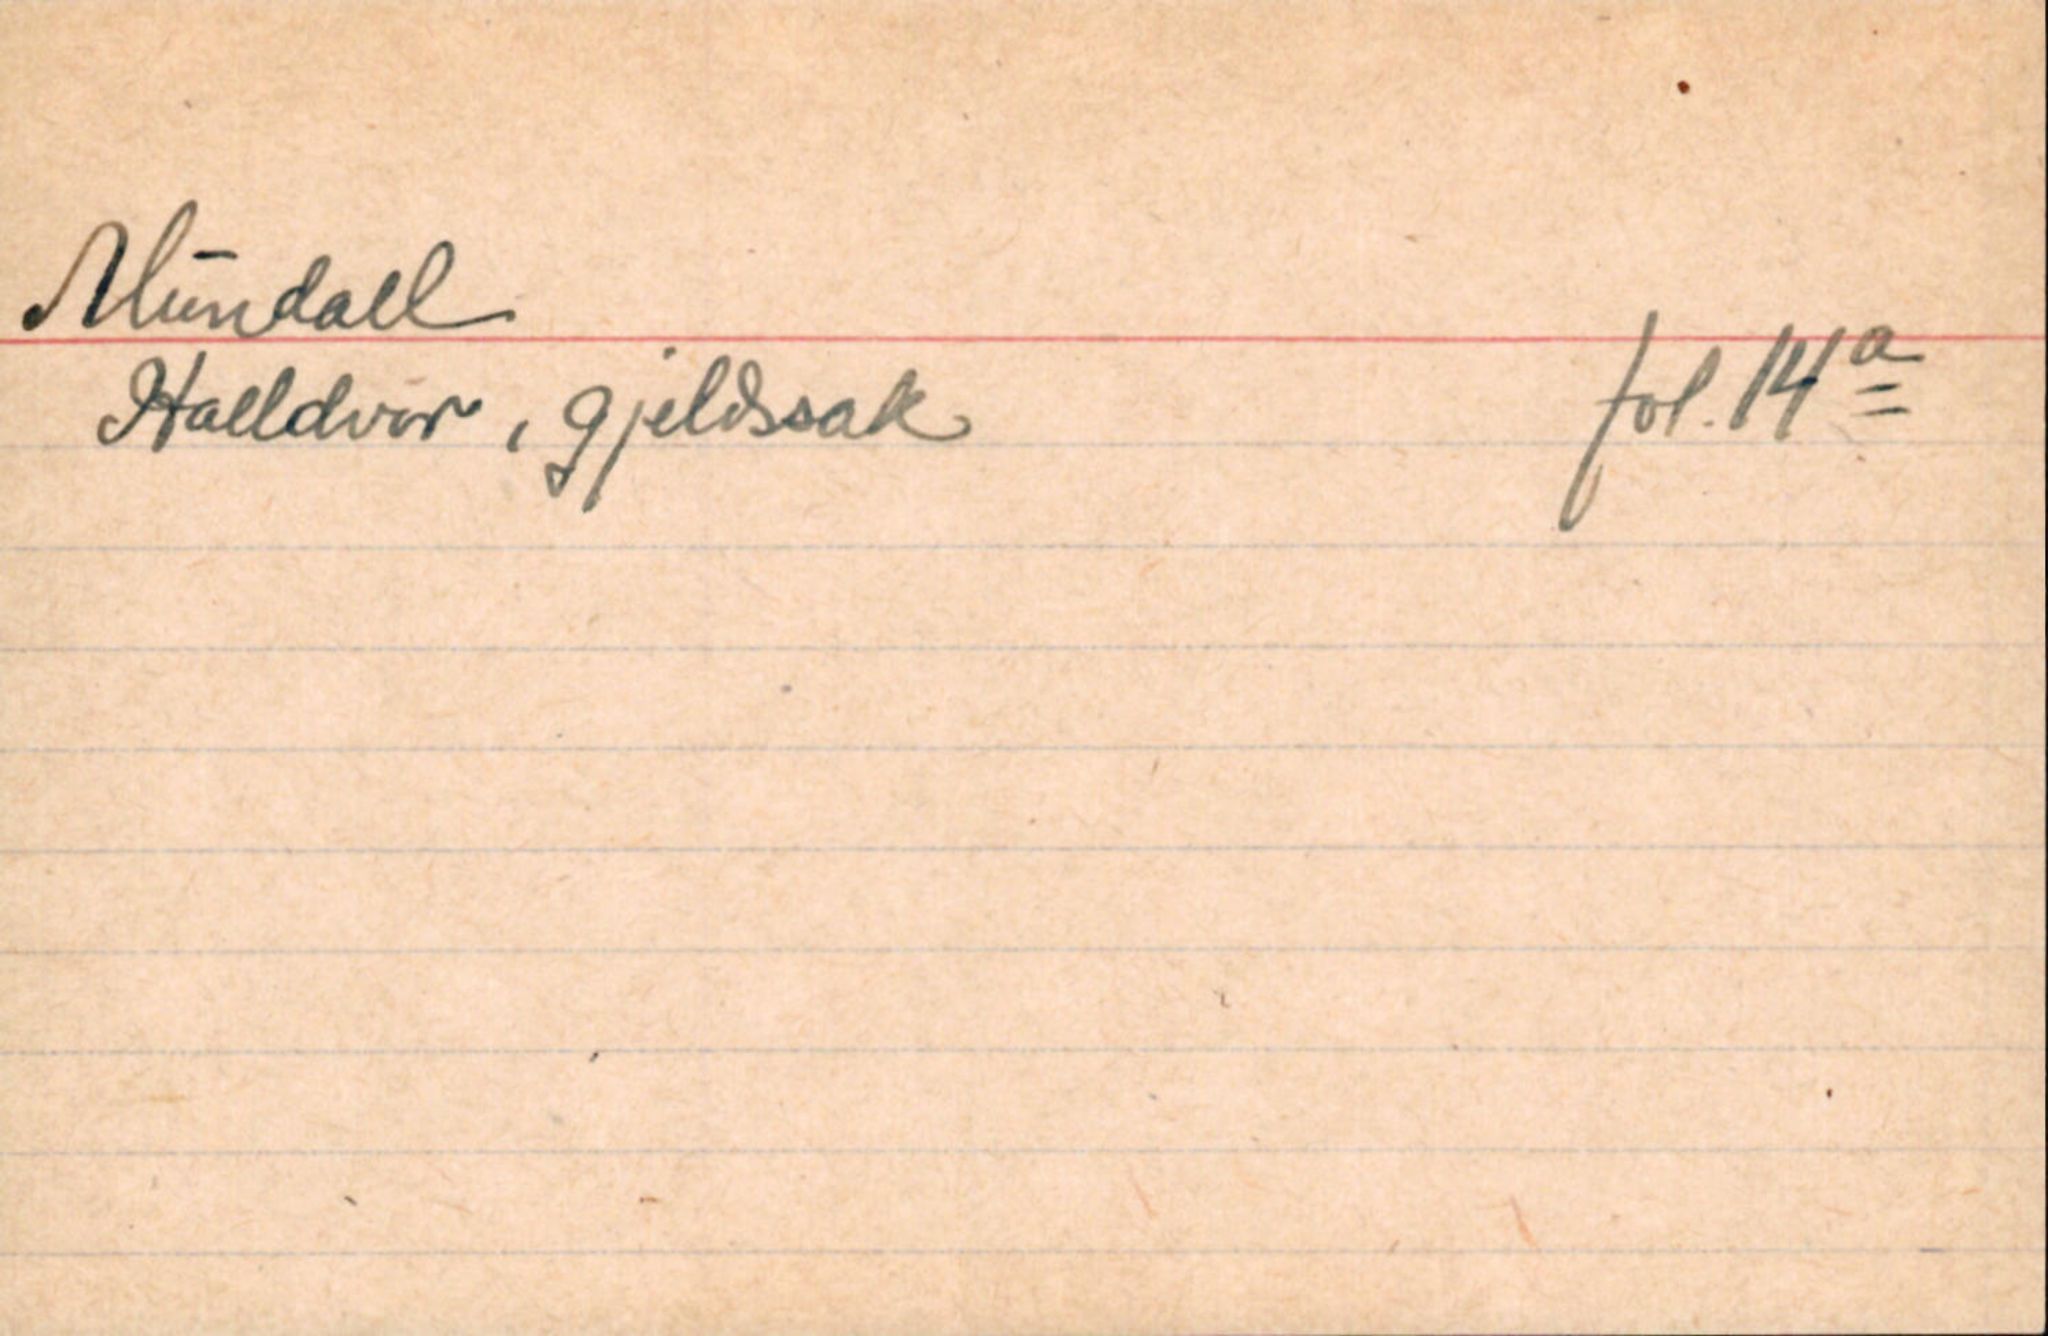 Mundall
Halldvor, gjeldssak fol. 14a